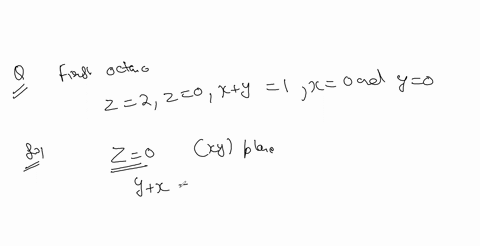 Q First octano
Z=2, Z=0, x+y =1, x=0 and y=0
Sol Z=0 (xy) plane
y+x =